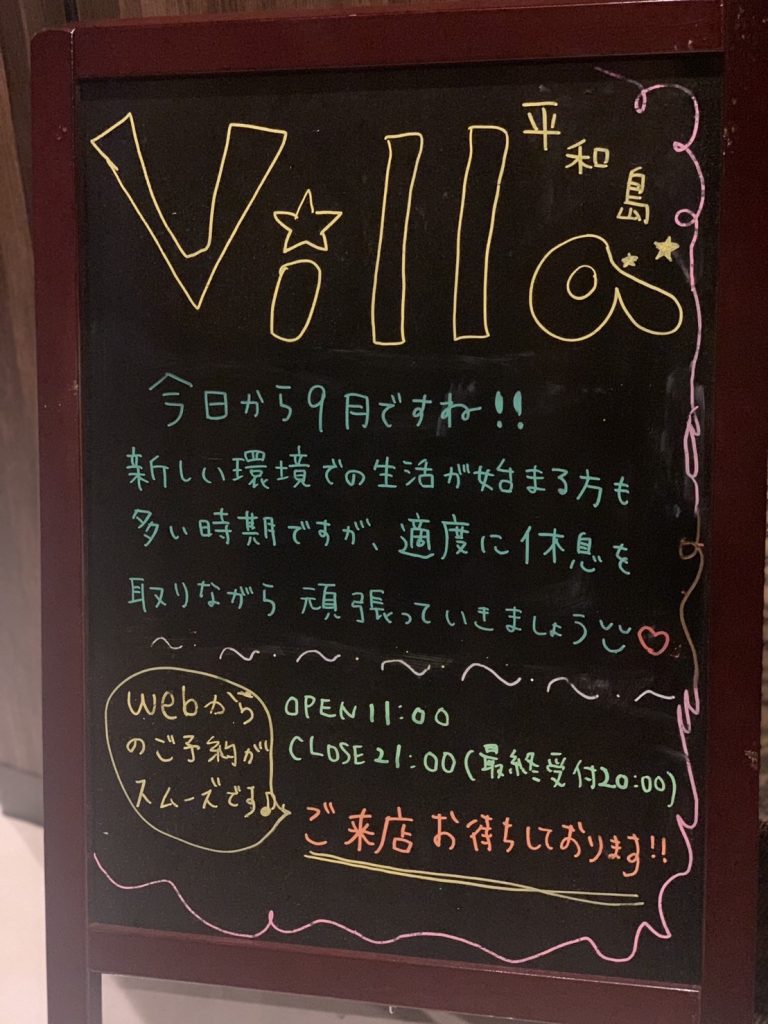 Villa
平和島
今日から9月ですね!!
新しい環境での生活が始まる方も
多い時期ですが、適度に休息を
取りながら頑張っていきましょう
webから
のご予約が
スムーズです♪
OPEN 11:00
CLOSE 21:00(最終受付20:00)
ご来店お待ちしております!!